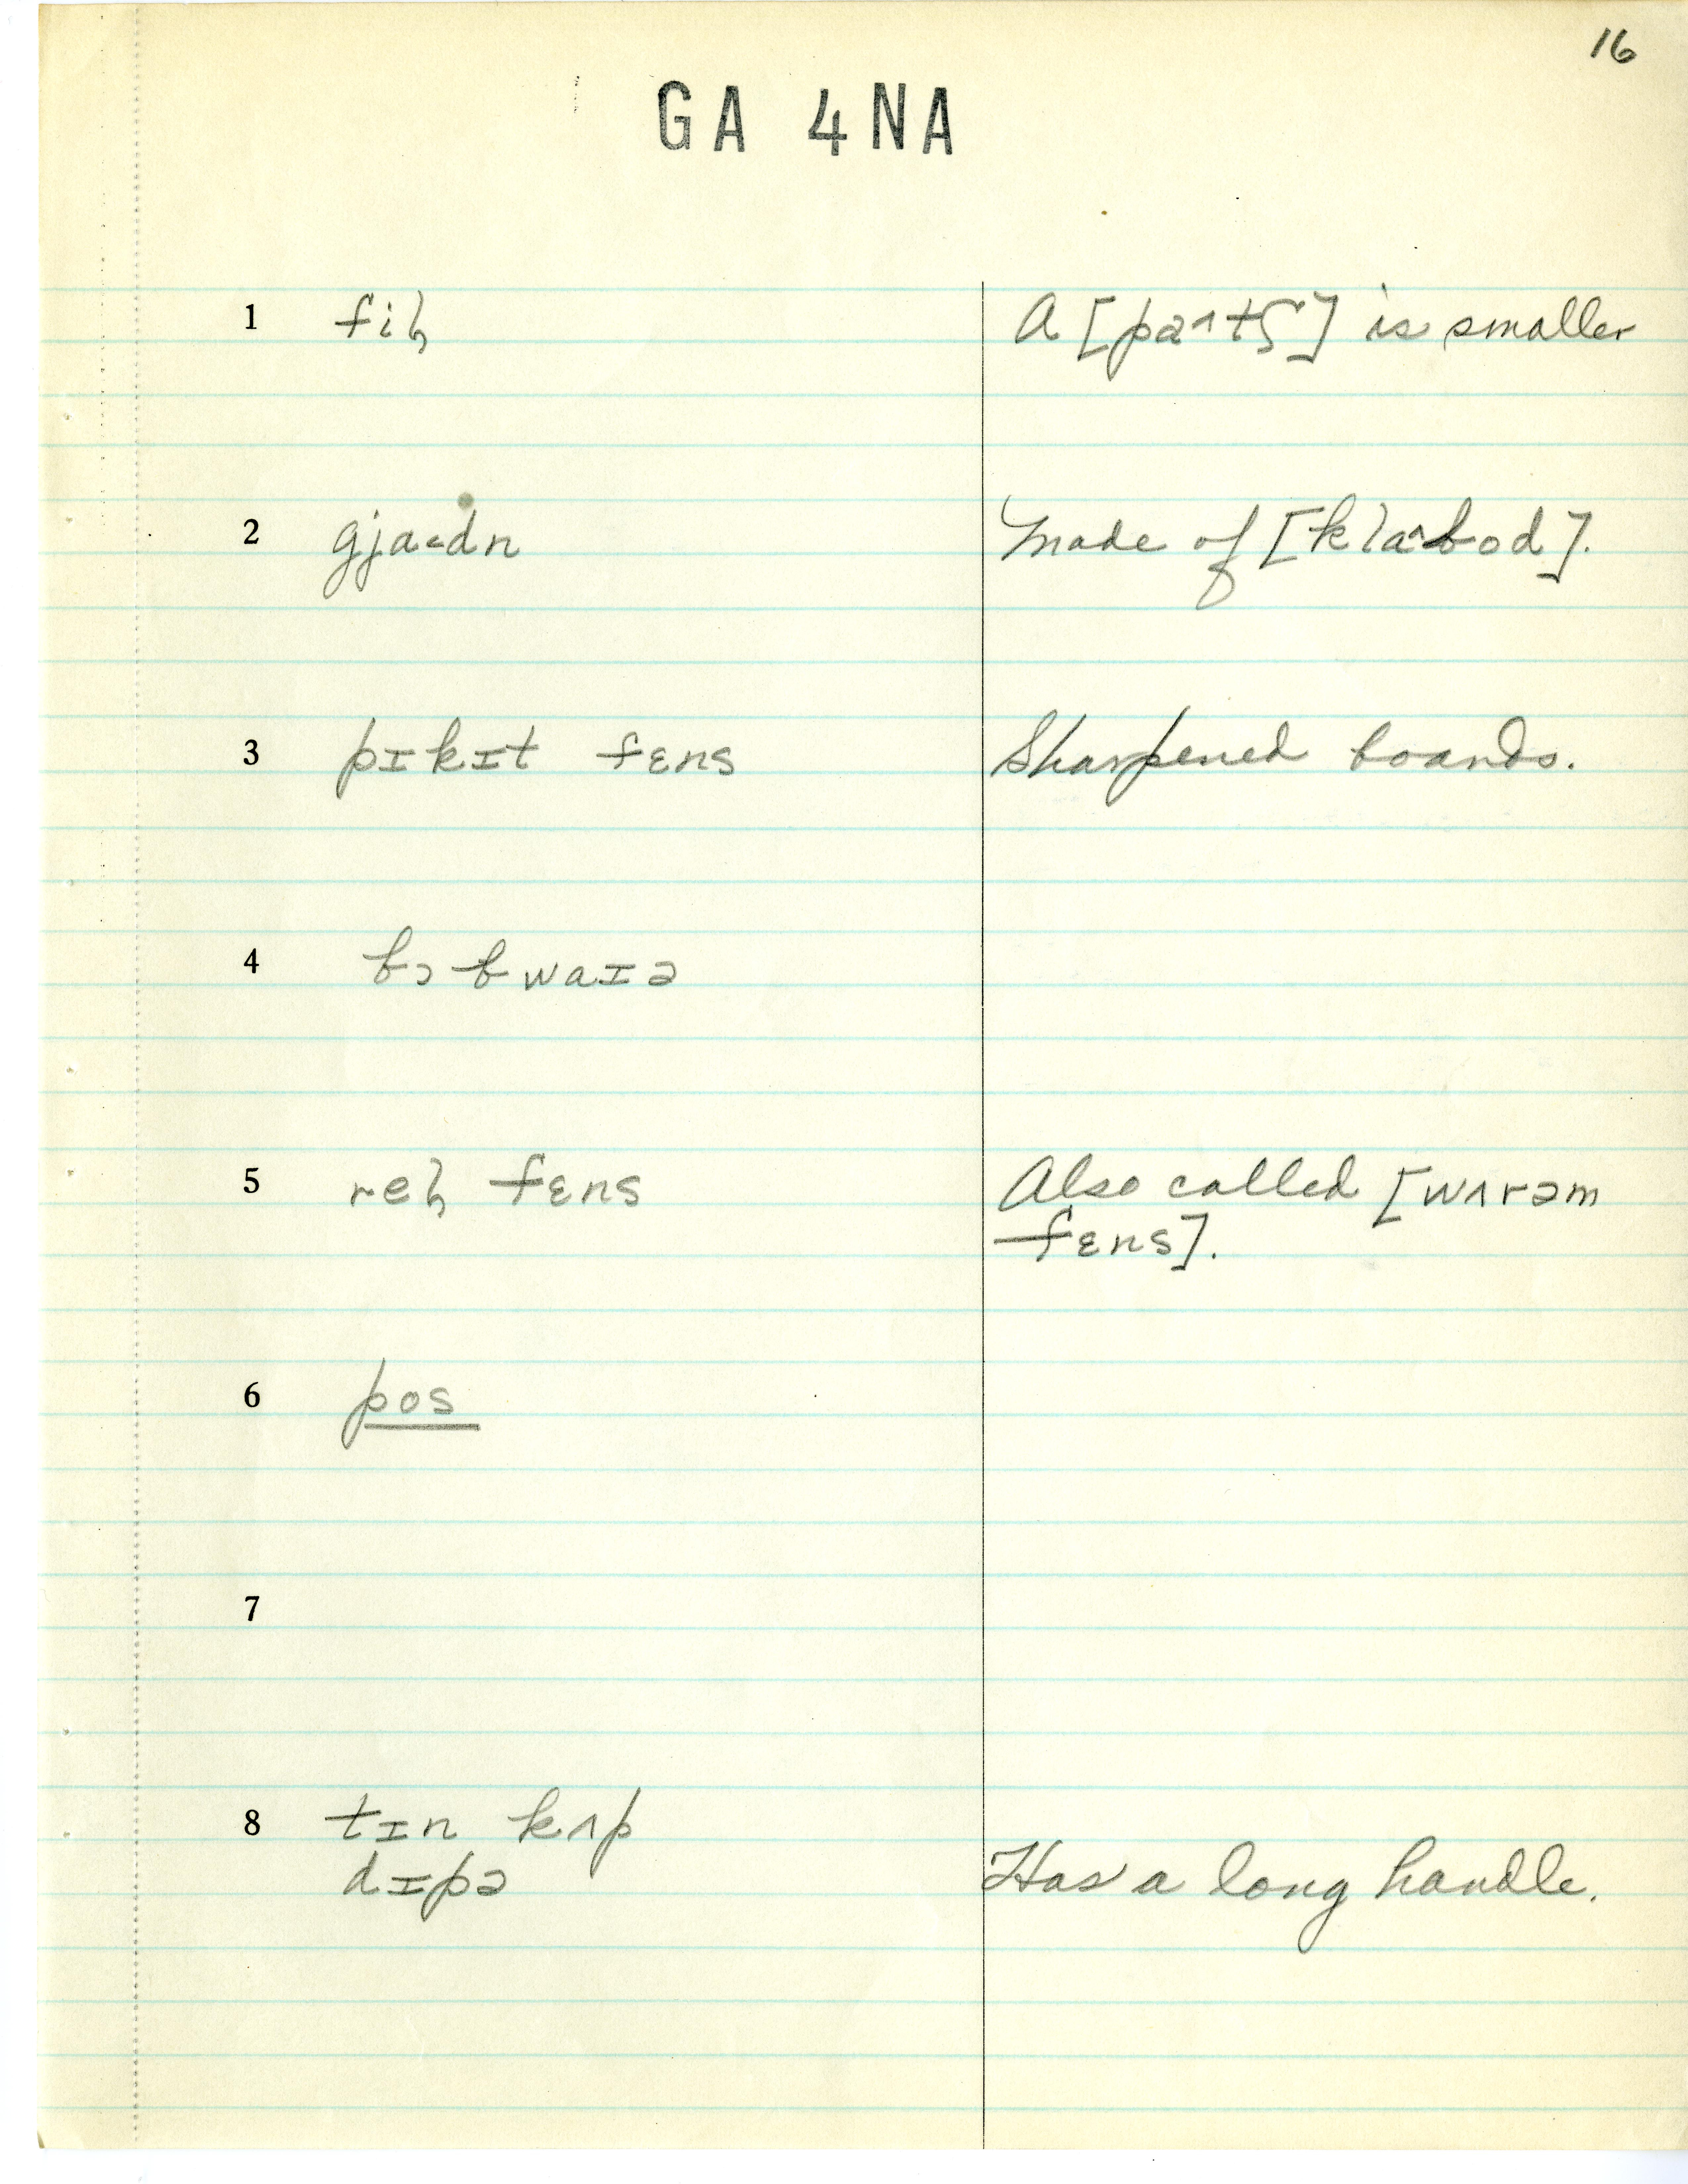 16
GA 4NA
1 fiɫ A [pa^tʃ] is smaller
2 gja˂dn Made of [kla^bod].
3 pɪkɪt fɛns Sharpened boards.
4 bɔbwaɪə
5 reɫ fɛns Also called [wʌrəm
fɛns].
6 pos
7
8 tɪn kʌp
dɪpə Has a long handle.